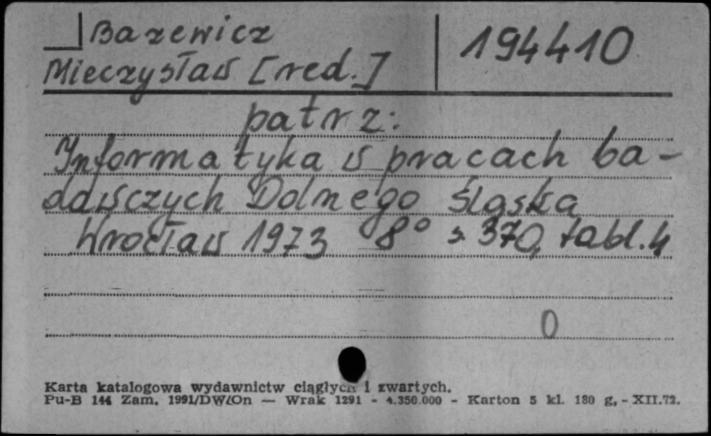 Bazewicz
194410
Mieczysław [red.]
patrz:
Informatyka w pracach ba-
dawczych Dolnego Śląska
Wrocław 1973 8° s. 370, tabl. 4
0
Karta katalogowa wydawnictw ciągłych i zwartych.
Pu-B 144 Zam. 1991/DW/On — Wrak 1291 - 4.350.000 - Karton 5 kl. 180 g, - XII.72.